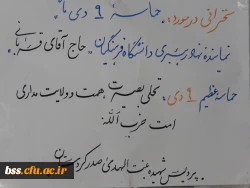 سخنرانی درمورد: حماسه 9 دی با
نماینده نهاد رهبری دانشگاه فرهنگیان "حاج آقای قربانی"
حماسه عظیم 9 دی: تجلی بصیرت، همت و ولایت مداری
امت حزب الله
پردیس شهیده بنت الهدی صدر کردستان
bss.cfu.ac.ir